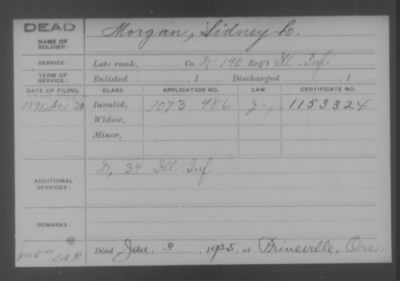 DEAD
NAME OF SOLDIER: Morgan, Sidney L.
SERVICE: Late rank, Co. D, 140 Reg't Ill. Inf.
TERM OF SERVICE: Enlisted , 1 Discharged , 1
DATE OF FILING. CLASS. APPLICATION NO. LAW. CERTIFICATE NO.
1891, 30 Invalid, 1073,486 1153324
Widow,
Minor,
ADDITIONAL SERVICES: D, 34 Ill Inf.
REMARKS:
Died Jan. 9, 1925, at Prineville, Ore.